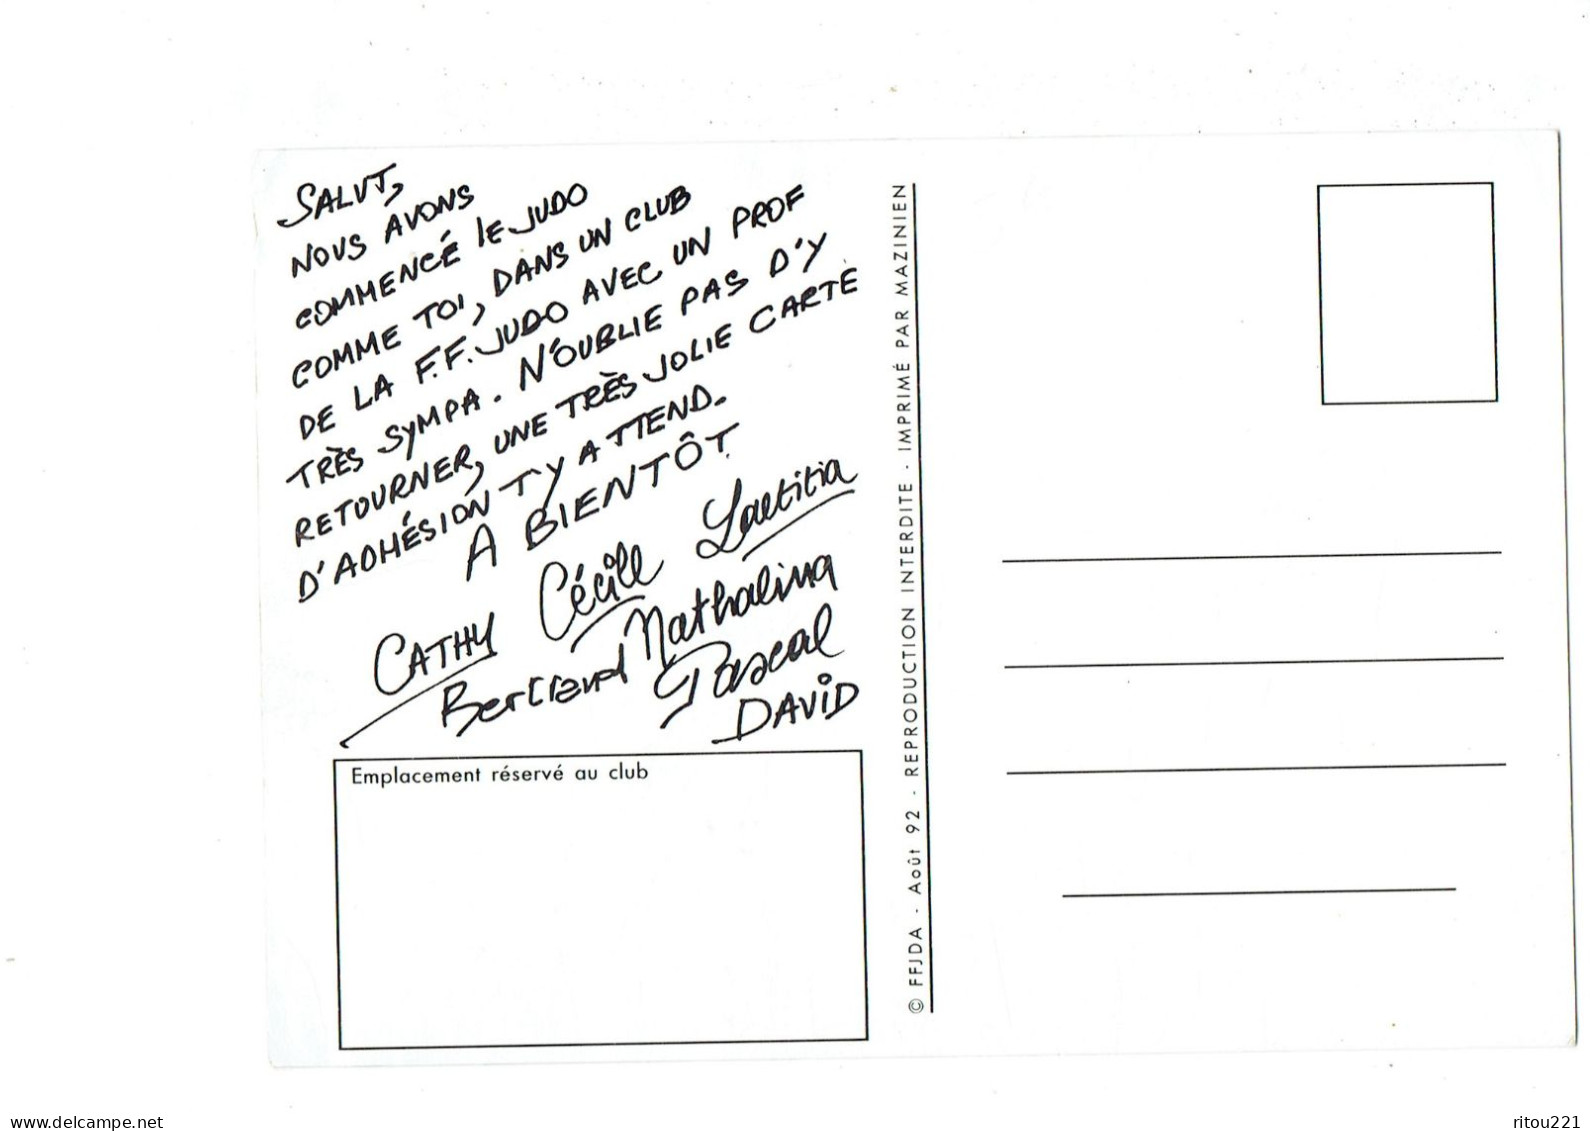 SALUT,
NOUS AVONS
COMMENCÉ lE JUDO
COMME TOI, DANS UN CLUB
DE LA F.F. JUDO AVEC UN PROF
TRÈS SYMPA. N'OUBLIE PAS D'Y
RETOURNER, UNE TRÈS JOLIE CARTE
D'ADHÉSION T'Y ATTEND.
A BIENTÔT
CATHY Cécile Laetitia
Bertrand Nathalina
Pascal
DAVID
Emplacement réservé au club
© FFJDA - Août 92 - REPRODUCTION INTERDITE - IMPRIMÉ PAR MAZINIEN
www.delcampe.net
ritou221